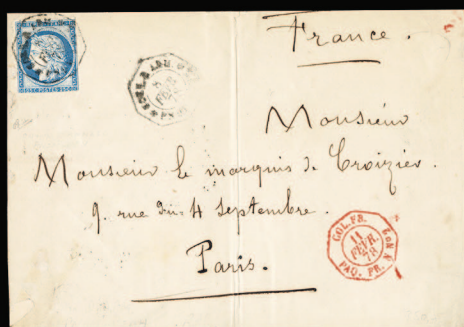 France.
Monsieur
Monsieur le marquis de Croizier.
9. rue du 4 Septembre.
Paris.
COL. FR.
11
FEVR.
78
PAQ. FR. N Nº2